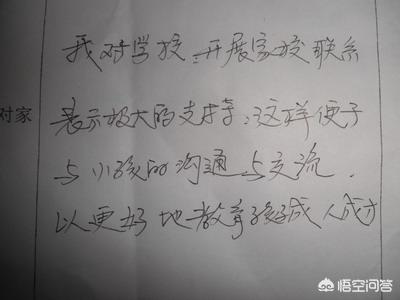 我对学校:开展家校联系
对家
表示极大的支持,这样便于
与小孩的沟通与交流.
以更好地教育孩子成人成才
悟空问答